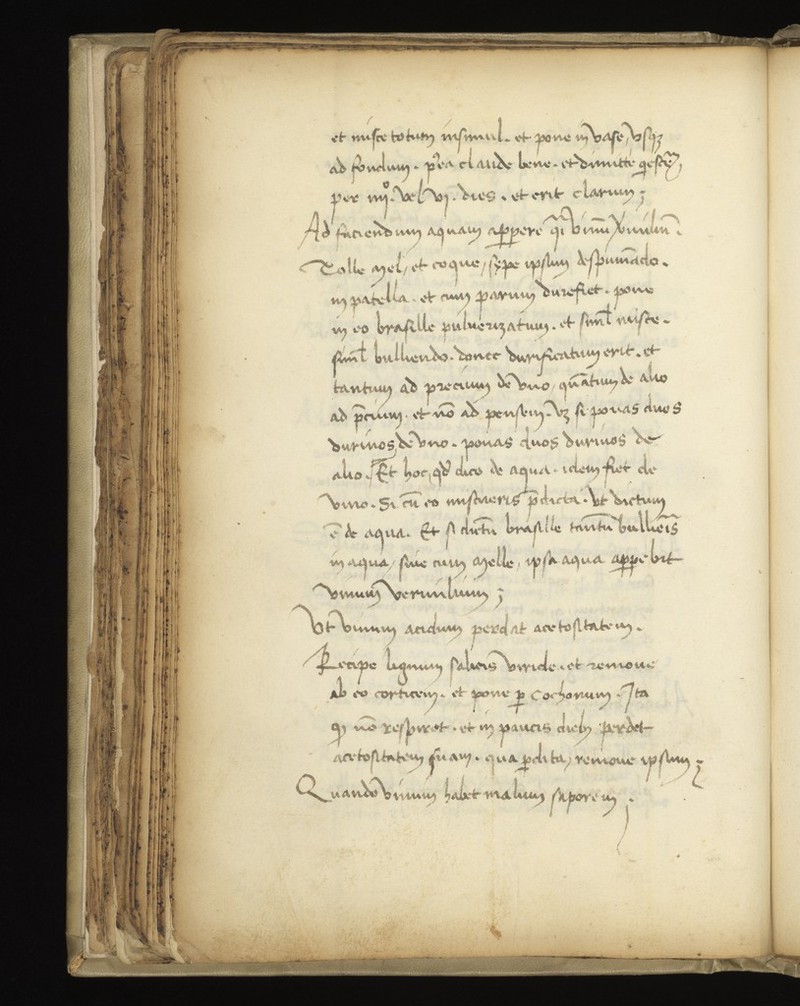 et misce totum insimul. et pone in vase, vsqz
ad fondum. p'ea claude bene. et dimitte q̄escē,
per iiijo. vel vj. dies. et erit clarum;
Ad faciendum aquam apparere q̄i vinū vmiliū.
Tolle mel, et coque, sepe ipsum despumādo.
in patella. et cum parum durefiet. pone
in eo brasille puluerizatum. et siml̄ misce.
siml̄ bulliendo. donec durificatum erit. et
tantum ad precium de vno, quātum de alio
ad p̄cium. et nō ad pensem. vz si ponas duos
de vno. ponas duos de
alio. Et hoc, qd̄ dico de aqua. idem fiet de
vino. Si cū eo miscueris p̄dicta. vt dictum
ē de aqua. Et si dictū brasille tantū bullieris
in aqua, siue cum melle, ipsa aqua apparebit
vinum vermilium;
Vt vinum acidum perdat acetositatem.
Recipe lignum salicis viride. et remoue
ab eo corticem. et pone p cochonum. Ita
q nō respiret. et in paucis dieb; perdet
acetositatem suam. qua pdita, remoue ipsum;
Quando vinum habet malum saporem.